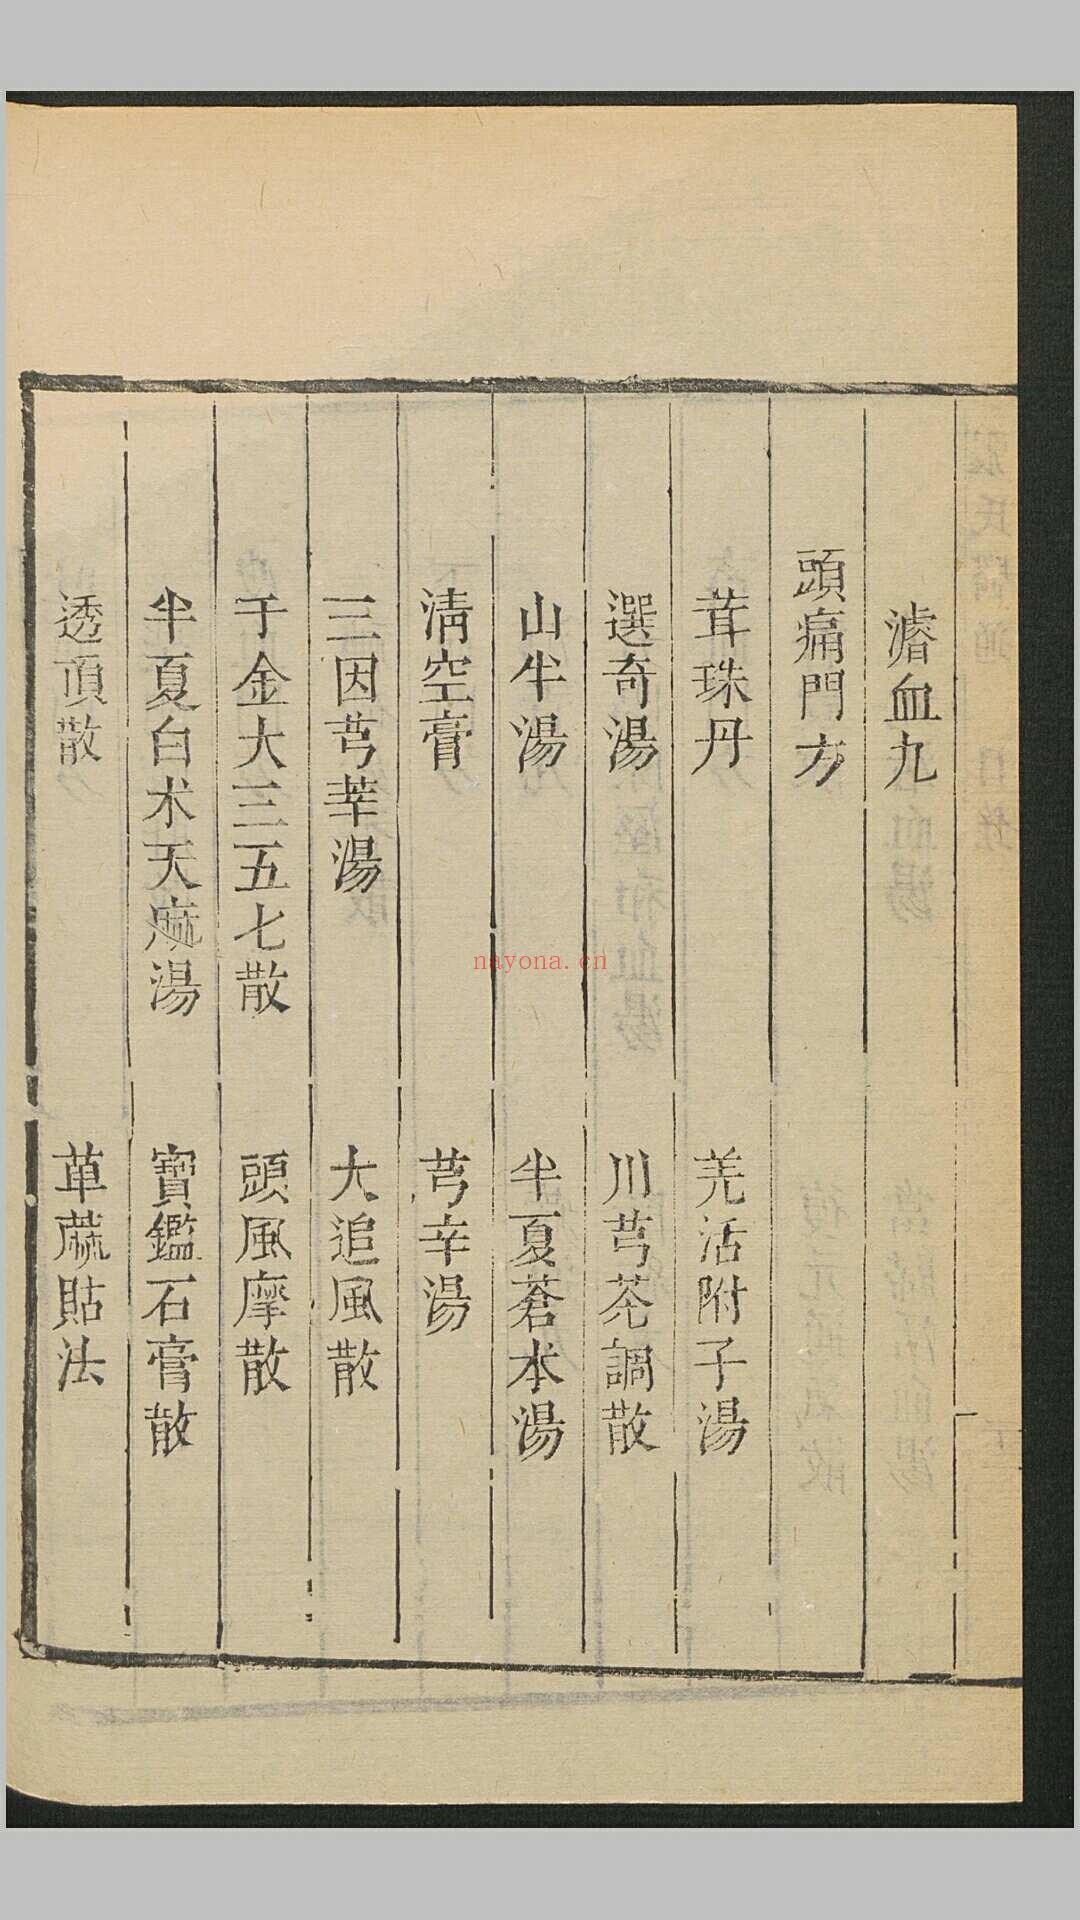 濬血九
頭痛門方
茸珠丹　羌活附子湯
選奇湯　川芎茶調散
山牛湯　半夏蒼本湯
清空膏　芎辛湯
三因芎莘湯　大追風散
千金大三五七散　頭風摩散
半夏白术天麻湯　寶鑑石膏散
透頂散　草蔴貼法
nayona.cn